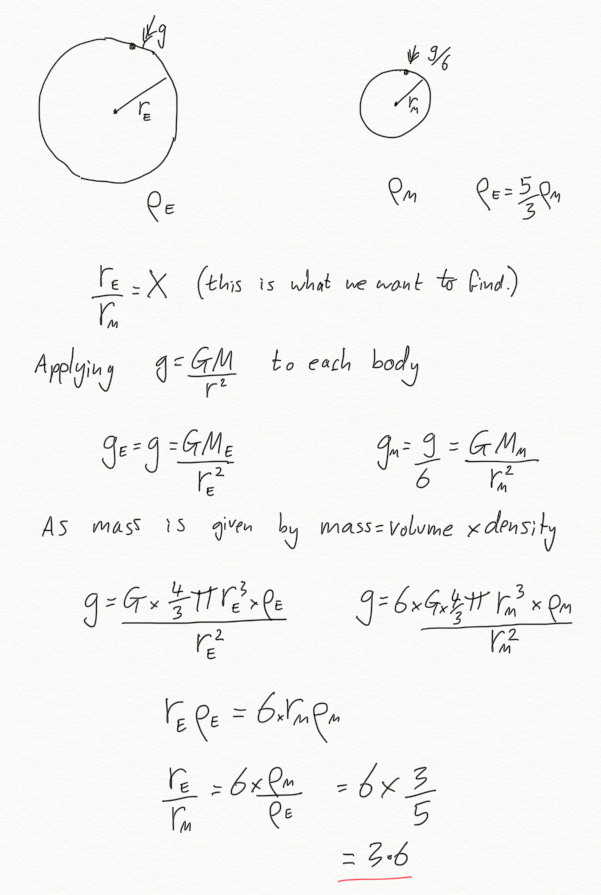 g g/6
r_E r_M
ρ_E ρ_M ρ_E = 5/3 ρ_M
r_E/r_M = X (this is what we want to find.)
Applying g = GM/r² to each body
g_E = g = GM_E/r_E² g_M = g/6 = GM_M/r_M²
As mass is given by mass = volume × density
g = G × 4/3 π r_E³ × ρ_E / r_E² g = 6 × G × 4/3 π r_M³ × ρ_M / r_M²
r_E ρ_E = 6 × r_M ρ_M
r_E/r_M = 6 × ρ_M/ρ_E = 6 × 3/5
= 3·6